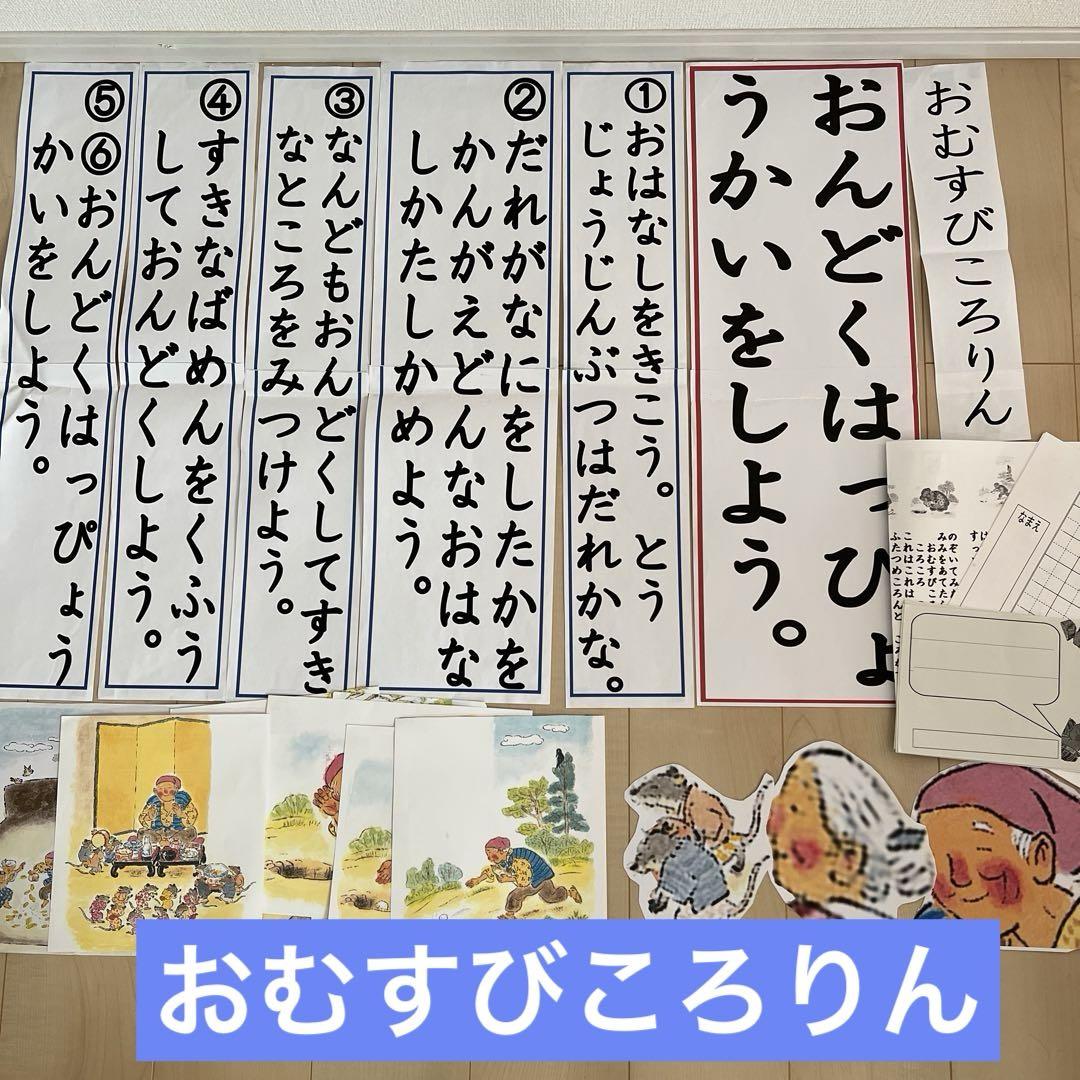 おむすびころりん
おんどくはっぴょ
うかいをしよう。
①おはなしをきこう。とう
じょうじんぶつはだれかな。
②だれがなにをしたかを
かんがえどんなおはな
しかたしかめよう。
③なんどもおんどくしてすき
なところをみつけよう。
④すきなばめんをくふう
しておんどくしよう。
⑤⑥おんどくはっぴょう
かいをしよう。
なまえ
おむすびころりん